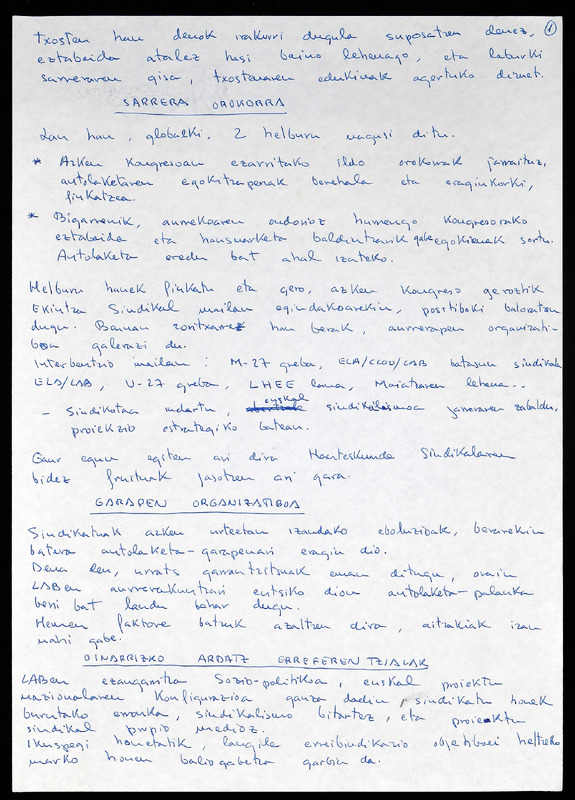 Txosten hau denok irakurri dugula suposatzen denez, ①
eztabaida atalez hasi baino lehenago, eta laburki
sarreraren gisa, txostenaren edukinak agertuko dizuet.
SARRERA OROKORRA
Lan hau, globalki, 2 helburu nagusi ditu.
* Azken Kongresoan ezarritako ildo orokorrak jarraituz,
antolaketaren egokitzapenak berehala eta eraginkorki,
finkatzea.
* Bigarrenik, aurrekoaren ondorioz hurrengo Kongresorako
eztabaida eta hausnarketa baldintzarik gabe egokienak sortu.
Antolaketa eredu bat ahal izateko.
Helburu hauek finkatu eta gero, azken Kongreso geroztik
Ekintza Sindikal mailan egindakoarekin, positiboki baloratzen
dugu. Bainan zoritxarrez hau berak, aurrerapen organizati-
boa galerazi du.
Interbentzio mailan: M-27 greba, ELA/CCOO/LAB batasun sindikala
ELA/LAB, U-27 greba, LHEE lana, Maiatzaren lehena..
- Sindikatua indartu, euskal sindikalismoa jarreraren zabaldu,
proiekzio estrategiko batean.
Gaur egun egiten ari dira Hauteskunde Sindikalaren
bidez fruituak jasotzen ari gara.
GARAPEN ORGANIZATIBOA
Sindikatuak azken urteetan izandako eboluzioak, berarekin
batera antolaketa-garapenari eragin dio.
Dena den, urrats garrantzitsuak eman ditugu, orain
LABen aurrerakuntzari eutsiko dion antolaketa-palanka
berri bat landu behar dugu.
Hemen faktore batzuk azaltzen dira, aitzakiak izan
nahi gabe.
OINARRIZKO ARDATZ ERREFERENTZIALAK
LABen ezaugarritza Sozio-politikoa, euskal proiektu
nazionalaren konfigurazioa gauza dadin, sindikatu honek
burutako erronka, sindikalismo bitartez, eta proiektu
sindikal propio medioz.
Ikuspegi honetatik, langile erreibindikazio objetiboei heltzeko
marko honen baliogabetza garbia da.